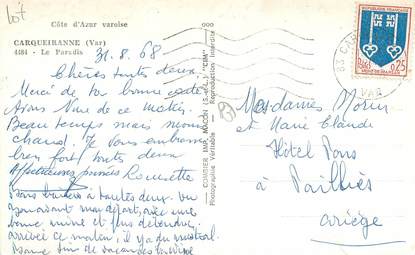 lot
Côte d'Azur varoise
CARQUEIRANNE (Var)
4184 - Le Paradis
31.8.68
Chères toutes deux,
Merci de ta bonne carte
Avons Vine de ce matin.
Beau temps mais moins
chaud. Je Vous embrasse
bien fort toutes deux
Affectueuses pensées
Bons baisers à toutes deux.
avant mon départ, avec une
bonne mine et plus détendue
arrivée ce matin, il y a du mistral
Bonne fin de vacances
COMBIER IMP. MACON (S.-et-L.) "CIM"
Photographie Véritable - Reproduction Interdite
REPUBLIQUE FRANCAISE
0,25
83 CAR
VAR
Mesdames Morin
et Marie Claude
Hôtel Pons
à Pailhès
Ariège